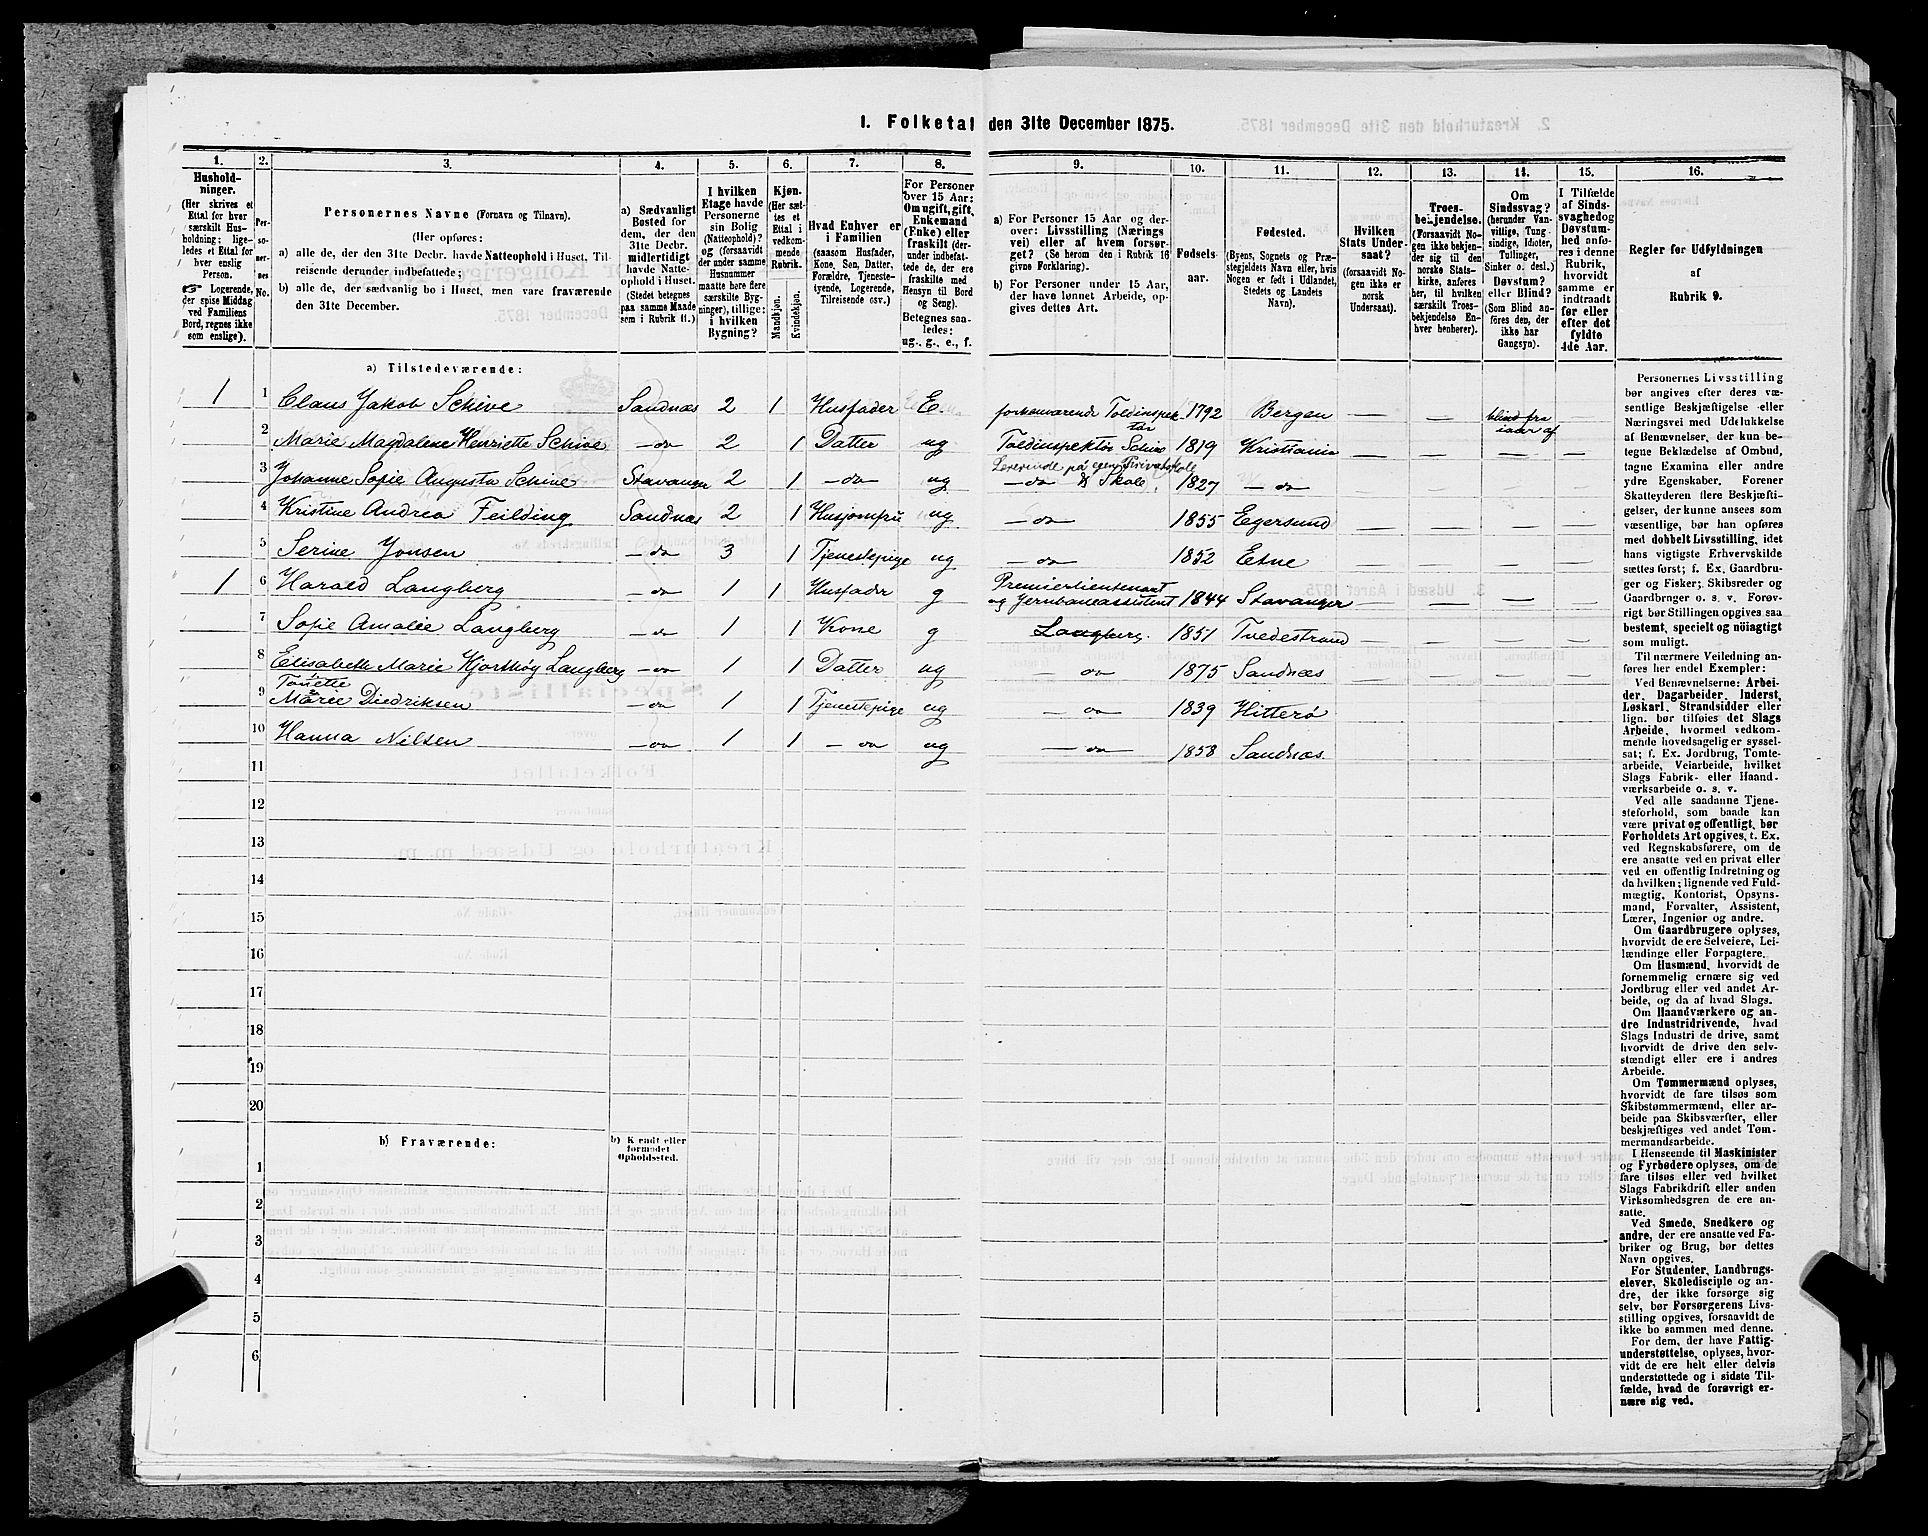 1. Folketal den 31te December 1875.
1. 2. 3. 4. 5. 6. 7. 8. 9. 10. 11. 12. 13. 14. 15. 16.
Hushold-
ninger.
(Her skrives et
Ettal for hver
særskilt Hus-
holdning; lige-
ledes et Ettal for
hver enslig
Person.
☞ Logerende,
der spise Middag
ved Familiens
Bord, regnes ikke
som enslige).
Per-
so-
ner-
nes
No.
Personernes Navne (Fornavn og Tilnavn).
(Her opføres:
a) alle de, der den 31te Decbr. havde Natteophold i Huset, Til-
reisende derunder indbefattede;
b) alle de, der sædvanlig bo i Huset, men vare fraværende
den 31te December.
a) Sædvanligt
Bosted for
dem, der den
31te Decbr.
midlertidigt
havde Natte-
ophold i Huset.
(Stedet betegnes
paa samme Maade
som i Rubrik 11.)
I hvilken
Etage havde
Personerne
sin Bolig
(Natteophold)?
og (forsaavidt
der under samme
Husnummer
maatte høre flere
særskilte Byg-
ninger), tillige:
i hvilken
Bygning?
Kjøn.
(Her sæt-
tes et
Ettal i
vedkom-
mende
Rubrik.
Mandkjøn.
Kvindekjøn.
Hvad Enhver er
i Familien
(saasom Husfader,
Kone, Søn, Datter,
Forældre, Tjeneste-
tyende, Logerende,
Tilreisende osv.)
For Personer
over 15 Aar:
Om ugift, gift,
Enkemand
(Enke) eller
fraskilt (der-
under indbefat-
tede de, der ere
fraskilte med
Hensyn til Bord
og Seng).
Betegnes saa-
ledes:
ug., g., e., f.
a) For Personer 15 Aar og der-
over: Livsstilling (Nærings
vei) eller af hvem forsør-
get? (Se herom den i Rubrik 16
givne Forklaring).
b) For Personer under 15 Aar,
der have lønnet Arbeide, op-
gives dettes Art.
Fødsels-
aar.
Fødested.
(Byens, Sognets og Præ-
stegjeldets Navn eller, hvis
Nogen er født i Udlandet,
Stedets og Landets
Navn).
Hvilken
Stats Under-
saat?
(forsaavidt No-
gen ikke er
norsk
Undersaat).
Troes-
bekjendelse.
(Forsaavidt No-
gen ikke bekjen-
der sig til den
norske Stats-
kirke, anføres
her, til hvilken
særskilt Troes-
bekjendelse En-
hver henhører).
Om
Sindssvag?
(herunder Van-
vittige, Tung
sindige, Idioter,
Tullinger,
Sinker o. desl.)
Døvstum?
eller Blind?
(Som Blind an-
føres den, der
ikke har
Gangsyn).
I Tilfælde
af Sinds-
svaghed og
Døvstum-
hed anfø-
res i denne
Rubrik,
hvorvidt
samme er
indtraadt
før eller
efter det
fyldte
4de Aar.
Regler for Udfyldningen
af
Rubrik 9.
a) Tilstedeværende:
1 1 Claus Jakob Schive Sandnæs 2 1 Husfader E. forhenværende Toldinspek-
tør 1792 Bergen — — blind fra
iaar af
2 Marie Magdalene Henriette Schive — do 2 1 Datter ug Toldinspektør Schive 1819 Kristiania
3 Johanne Sofie Augusta Schive Stavanger 2 1 — do ug Lærerinde på egen Privatskole
— do & Skole 1827 — do — — — —
4 Kristine Andrea Feilding Sandnæs 2 1 Husjomfru ug — do 1855 Egersund — — — —
5 Serine Jonsen — do 3 1 Tjenestepige ug — do 1852 Etne — — — —
1 6 Harald Langberg — do 1 1 Husfader g Premierlieutenant
og Jernbaneassistent 1844 Stavanger — — — —
7 Sofie Amalie Langberg — do 1 1 Kone g Langberg. 1851 Tvedestrand — — — —
8 Elisabeth Marie Hjorthøy Langberg — do 1 1 Datter ug — do 1875 Sandnæs — — — —
Tonette
9 Marie Diedriksen — do 1 1 Tjenestepige ug — do 1839 Hitterø — — — —
10 Hanna Nilsen — do 1 1 — do ug — do 1858 Sandnæs. — — — —
11
12
13
14
15
16
17
18
19
20
b) Fraværende:
b) Kjendt eller
formodet
Opholdssted.
1
2
3
4
5
6
Personernes Livsstilling
bør angives efter deres væ-
sentlige Beskjæftigelse eller
Næringsvei med Udelukkelse
af Benævnelser, der kun be-
tegne Beklædelse af Ombud,
tagne Examina eller andre
ydre Egenskaber. Forener
Skatteyderen flere Beskjæfti-
gelser, der kunne ansees som
væsentlige, bør han opføres
med dobbelt Livsstilling, idet
hans vigtigste Erhvervskilde
sættes først; f. Ex. Gaardbru-
ger og Fisker; Skibsreder og
Gaardbruger o. s. v. Forøv-
rigt bør Stillingen opgives saa
bestemt, specielt og nøiagtigt
som muligt.
Til nærmere Veiledning an-
føres her endel Exempler:
Ved Benævnelserne: Arbei-
der, Dagarbeider, Inderst,
Løskarl, Strandsidder eller
lign. bør tilføies det Slags
Arbeide, hvormed vedkom-
mende hovedsagelig er syssel-
sat; f. Ex. Jordbrug, Tomte-
arbeide, Veiarbeide, hvilket
Slags Fabrik- eller Haand-
værksarbeide o. s. v.
Ved alle saadanne Tjene-
steforhold, som baade kan
være privat og offentligt, bør
Forholdets Art opgives, t. Ex.
ved Regnskabsførere, om de
ere ansatte ved en privat eller
ved en offentlig Indretning og
da hvilken; lignende ved Fuld-
mægtig, Kontorist, Opsyns-
mand, Forvalter, Assistent,
Lærer, Ingeniør og andre.
Om Gaardbrugere oplyses,
hvorvidt de ere Selveiere, Lei-
lændinge eller Forpagtere.
Om Husmænd, hvorvidt de
fornemmelig ernære sig ved
Jordbrug eller ved andet Ar-
beide, og da af hvad Slags.
Om Haandværkere og an-
dre Industridrivende, hvad
Slags Industri de drive, samt
hvorvidt de drive den selv-
stændigt eller ere i andres
Arbeide.
Om Tømmermænd oplyses,
hvorvidt de fare tilsøs som
Skibstømmermænd, eller ar-
beide paa Skibsværfter, eller
beskjæftiges ved andet Tøm-
mermandsarbeide.
I Henseende til Maskinister
og Fyrbødere oplyses, om de
fare tilsøs eller ved hvilket
Slags Fabrikdrift eller anden
Virksomhedsgren de ere an-
satte.
Ved Smede, Snedkere og
andre, der ere ansatte ved Fa-
briker og Brug, bør dettes
Navn opgives.
For Studenter, Landbrugs-
elever, Skoledisciple og an-
dre, der ikke forsørge sig
selv, bør Forsørgerens Livs-
stilling opgives, forsaavidt de
ikke bo sammen med denne.
For dem, der have Fattig-
understøttelse, oplyses, hvor-
vidt de ere helt eller delvis
understøttede og i sidste Til-
fælde, hvad de forøvrigt er-
nære sig ved.